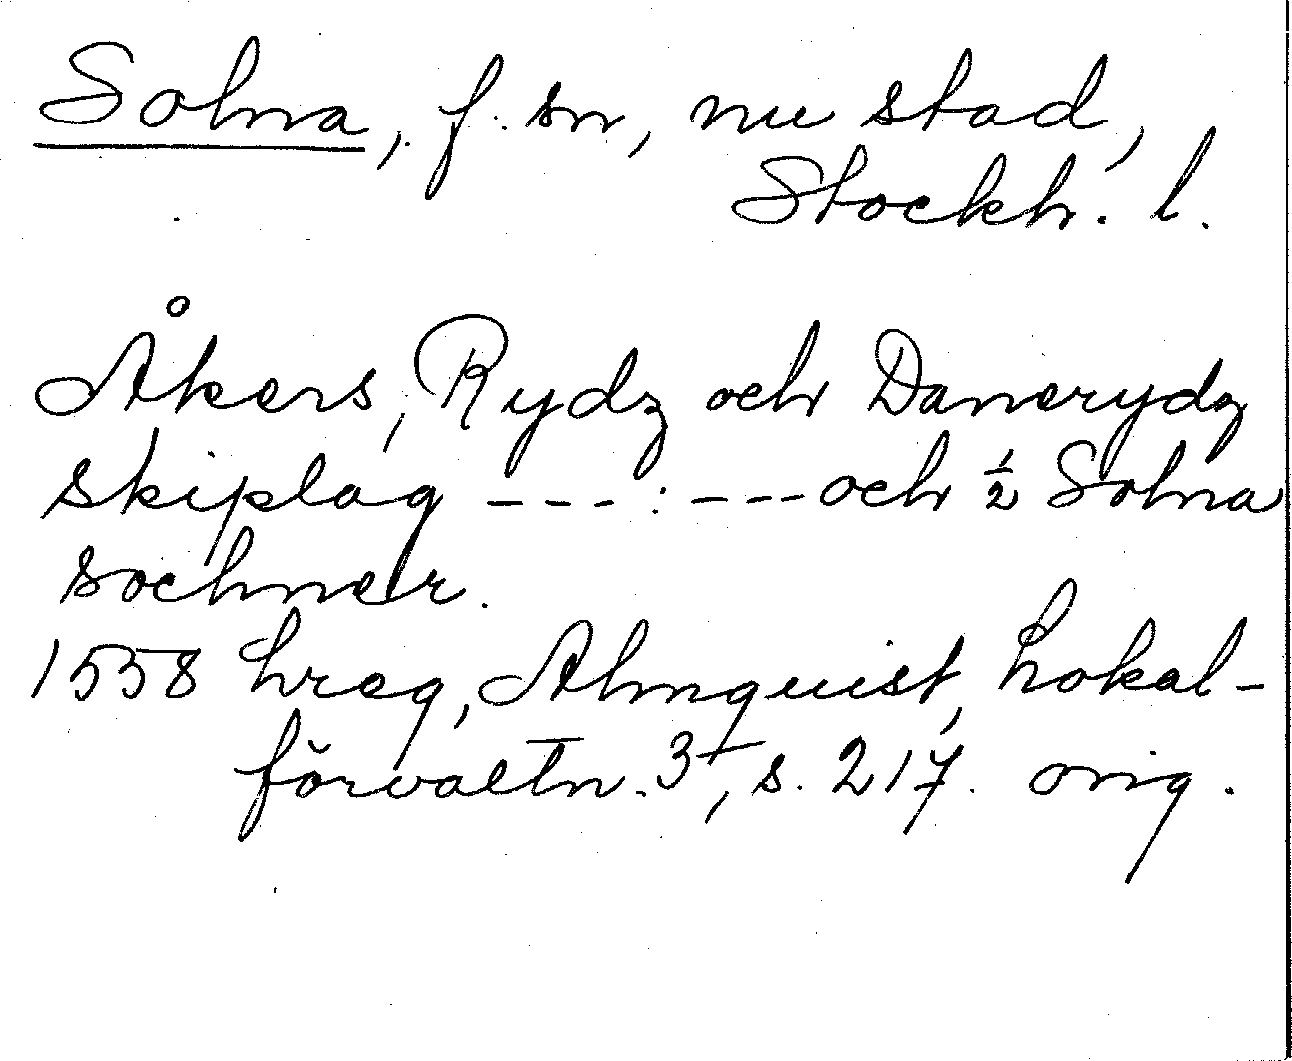 Solna, f. sn, nu stad,
Stockh. l.
Åkers, Rydz och Danerydz
skiplag ---:--- och ½ Solna
sochner.
1558 hreg, Almquist, Lokal-
förvaltn. 3, s. 217. orig.